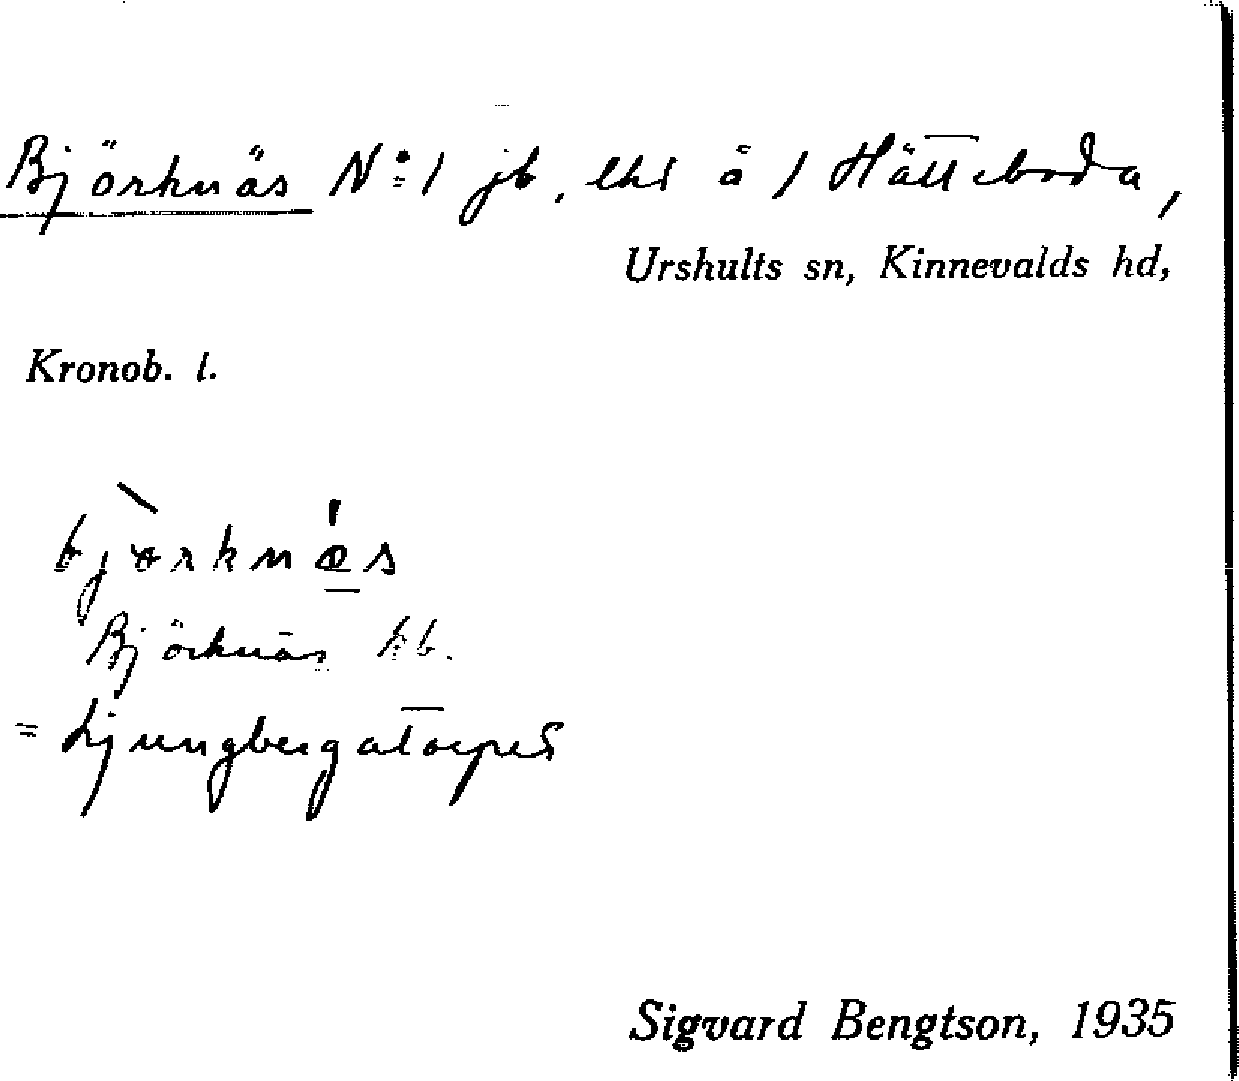 Björknäs No 1 jb, lht å 1 Hätteboda,
Urshults sn, Kinnevalds hd,
Kronob. l.
bjòrknæ̲s
Björknäs kb.
= Ljungbergatorpet
Sigvard Bengtson, 1935